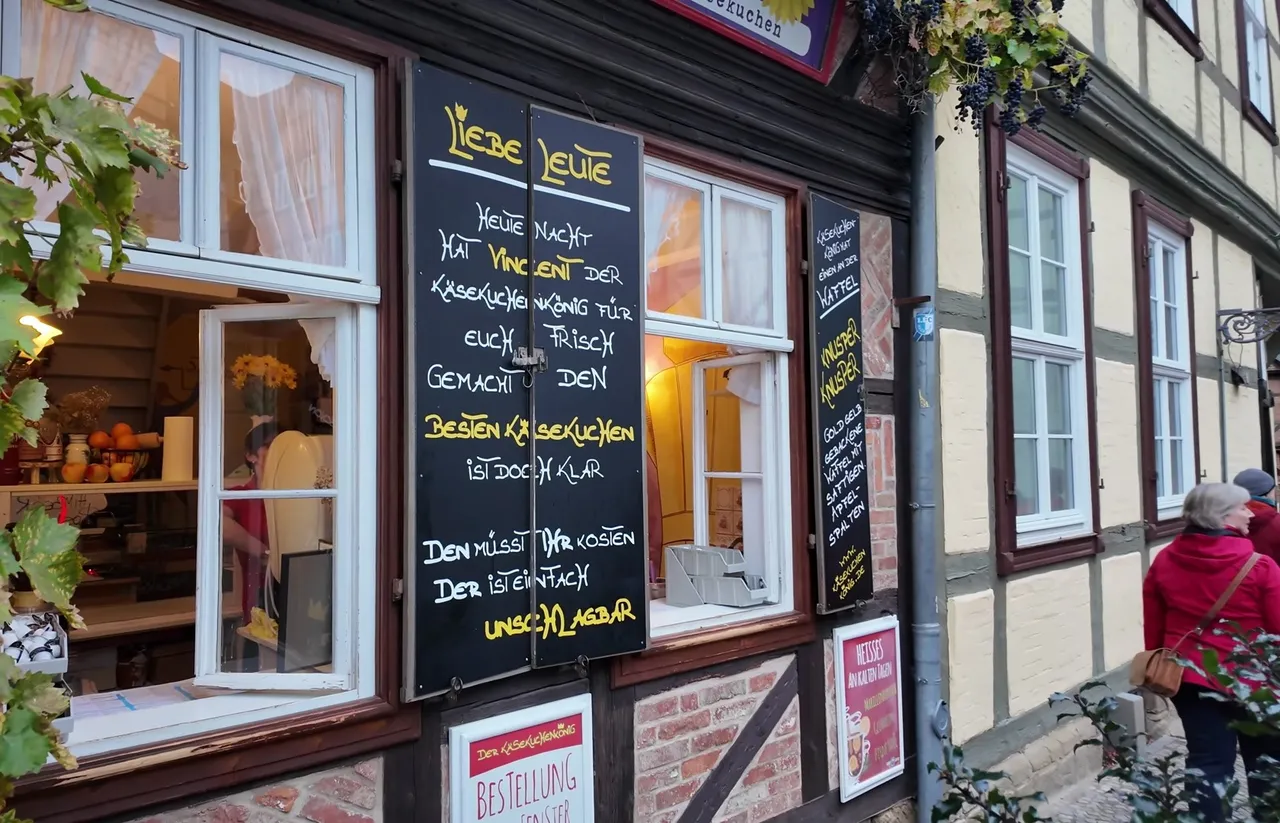 kuchen
LIEBE LEUTE
HEUTE NACHT
HAT VINCENT DER
KÄSEKUCHENKÖNIG FÜR
EUCH FRISCH
GEMACHT DEN
BESTEN KÄSEKUCHEN
IST DOCH KLAR
DEN MÜSST IHR KOSTEN
DER IST EINFACH
UNSCHLAGBAR
KÄSEKUCHEN-
KÖNIG HAT
EINEN AN DER
WAFFEL
KNUSPER
KNUSPER
GOLDGELB
GEBACKENE
WAFFEL MIT
SAFTIGEN
APFEL-
SPALTEN
WWW.
KÄSEKUCHEN
KÖNIG.DE
DER KÄSEKUCHENKÖNIG
BESTELLUNG
HEISSES
AN KALTEN TAGEN